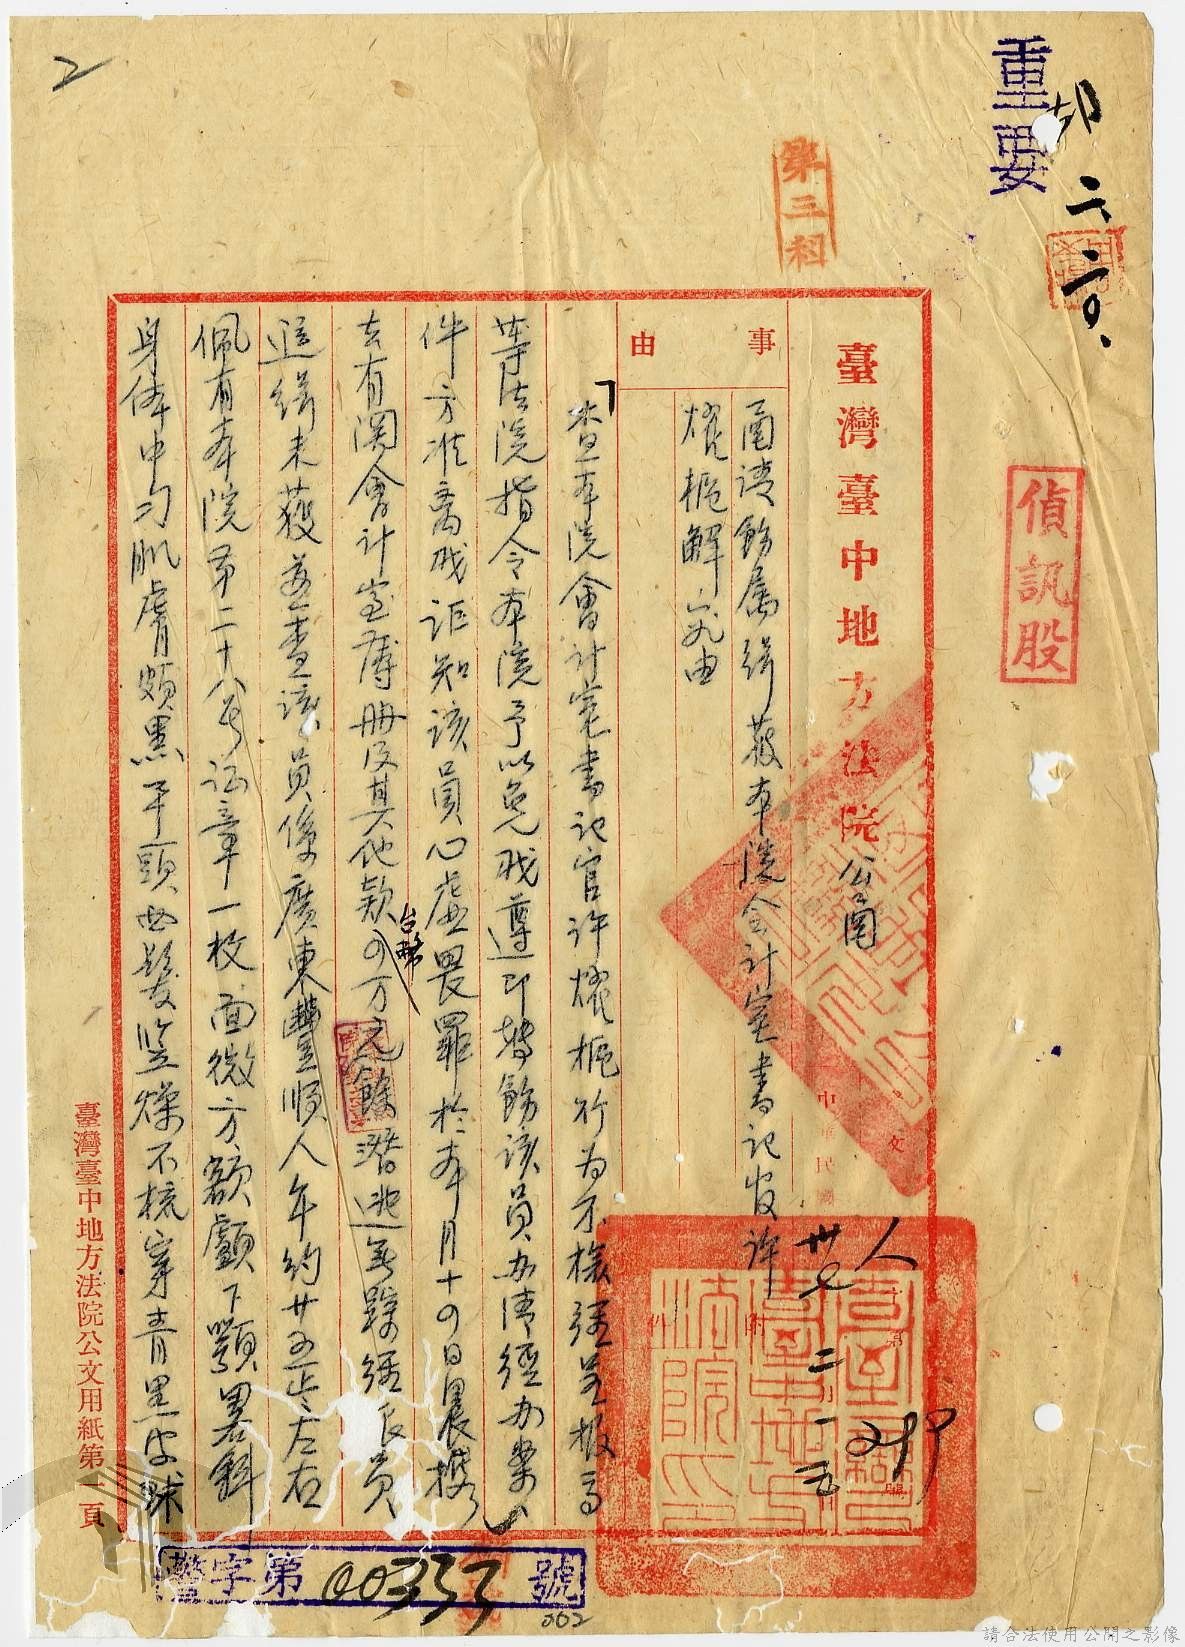 2
重要
卯
六
二〇、
第三科
偵訊股
臺灣臺中地方法院公函
人
卅七 二 一五
事由
函請飭屬緝獲本院會計室書記官許
燿樞解究由
查本院會計室書記官許燿樞行為不檢經呈報高
等法院指令本院予以免職遵即轉飭該員办清經办案
件方准离职詎知該員心虛畏罪於本月十四日晨携
去有関會計室簿冊及其他款台幣四万元餘潛逃無踪經派員
追緝未獲並查該員係廣東豐順人年約廿五岁左右
佩有本院第二十八号证章一枚面微方額顱下顎畧斜
身体中勻肌膚頗黑平頭西髮竖燥不梳穿青黑皮球
臺灣臺中地方法院公文用紙第一頁
警字第00333號
002
請合法使用公開之影像